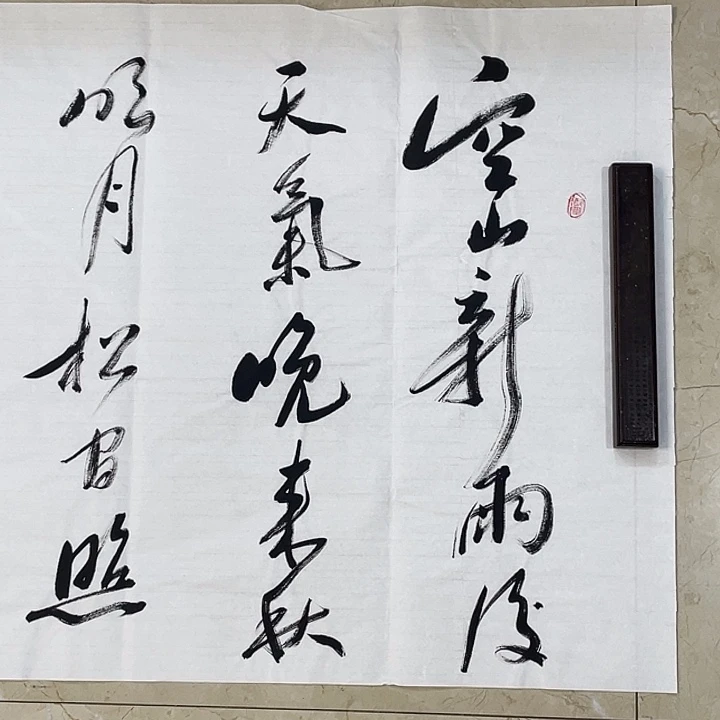 空山新雨後
天氣晚来秋
明月松间照